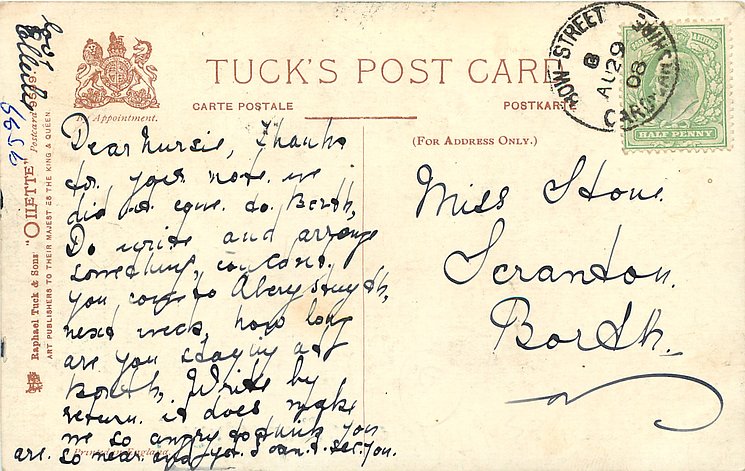 TUCK'S POST CARD
CARTE POSTALE
POSTKARTE
By Appointment.
(FOR ADDRESS ONLY.)
BOW STREET
AU 29
08
HALF PENNY
Raphael Tuck & Sons' "OILETTE" Postcard 95
ART PUBLISHERS TO THEIR MAJESTIES THE KING & QUEEN.
Dear Nursie, Thanks
for your note. we
did not come to Borth,
Do write and arrange
something,
you come to Aberystwyth,
next week, how long
are you staying at
Borth. Write by
return. it does make
me so angry to think you
are. so near and yet I can't see you.
Printed in England.
love
Miss Stone
Scranton.
Borth.